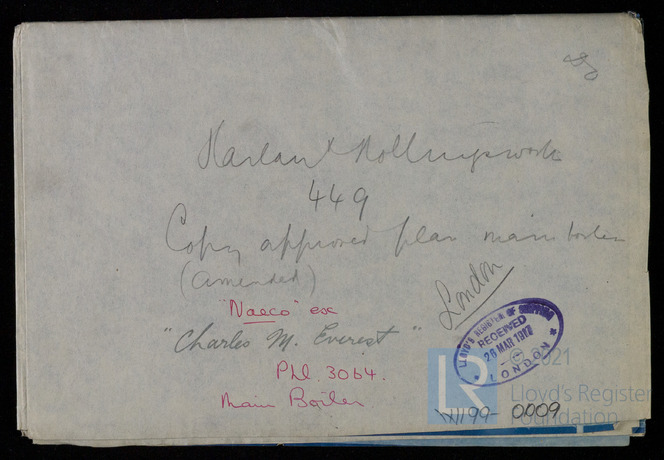 Harlan & Hollingsworth
449
Copy approved plan main boiler
(amended)
London
"Naeco" ex
"Charles M. Everest"
Phl. 3064.
Main Boiler
LLOYD'S REGISTER OF SHIPPING
RECEIVED
26 MAR 1917
LONDON
© 2021
LR
Lloyd's Register
Foundation
0009